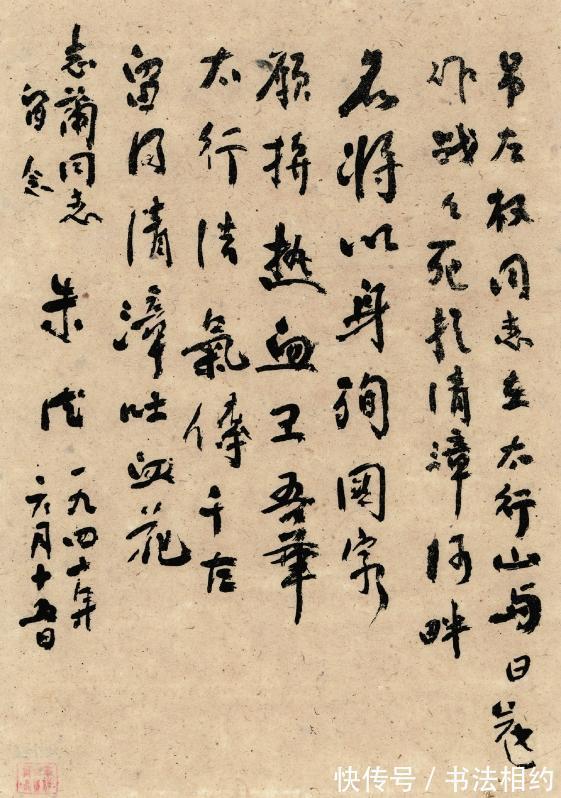 吊左权同志在太行山与日寇
作战々死於清漳河畔
名将以身殉國家
願拚热血卫吾華
太行浩氣傳千古
留得清漳吐血花
志蘭同志
留念
朱德
一九四年
六月十五日
快传号 / 书法相约